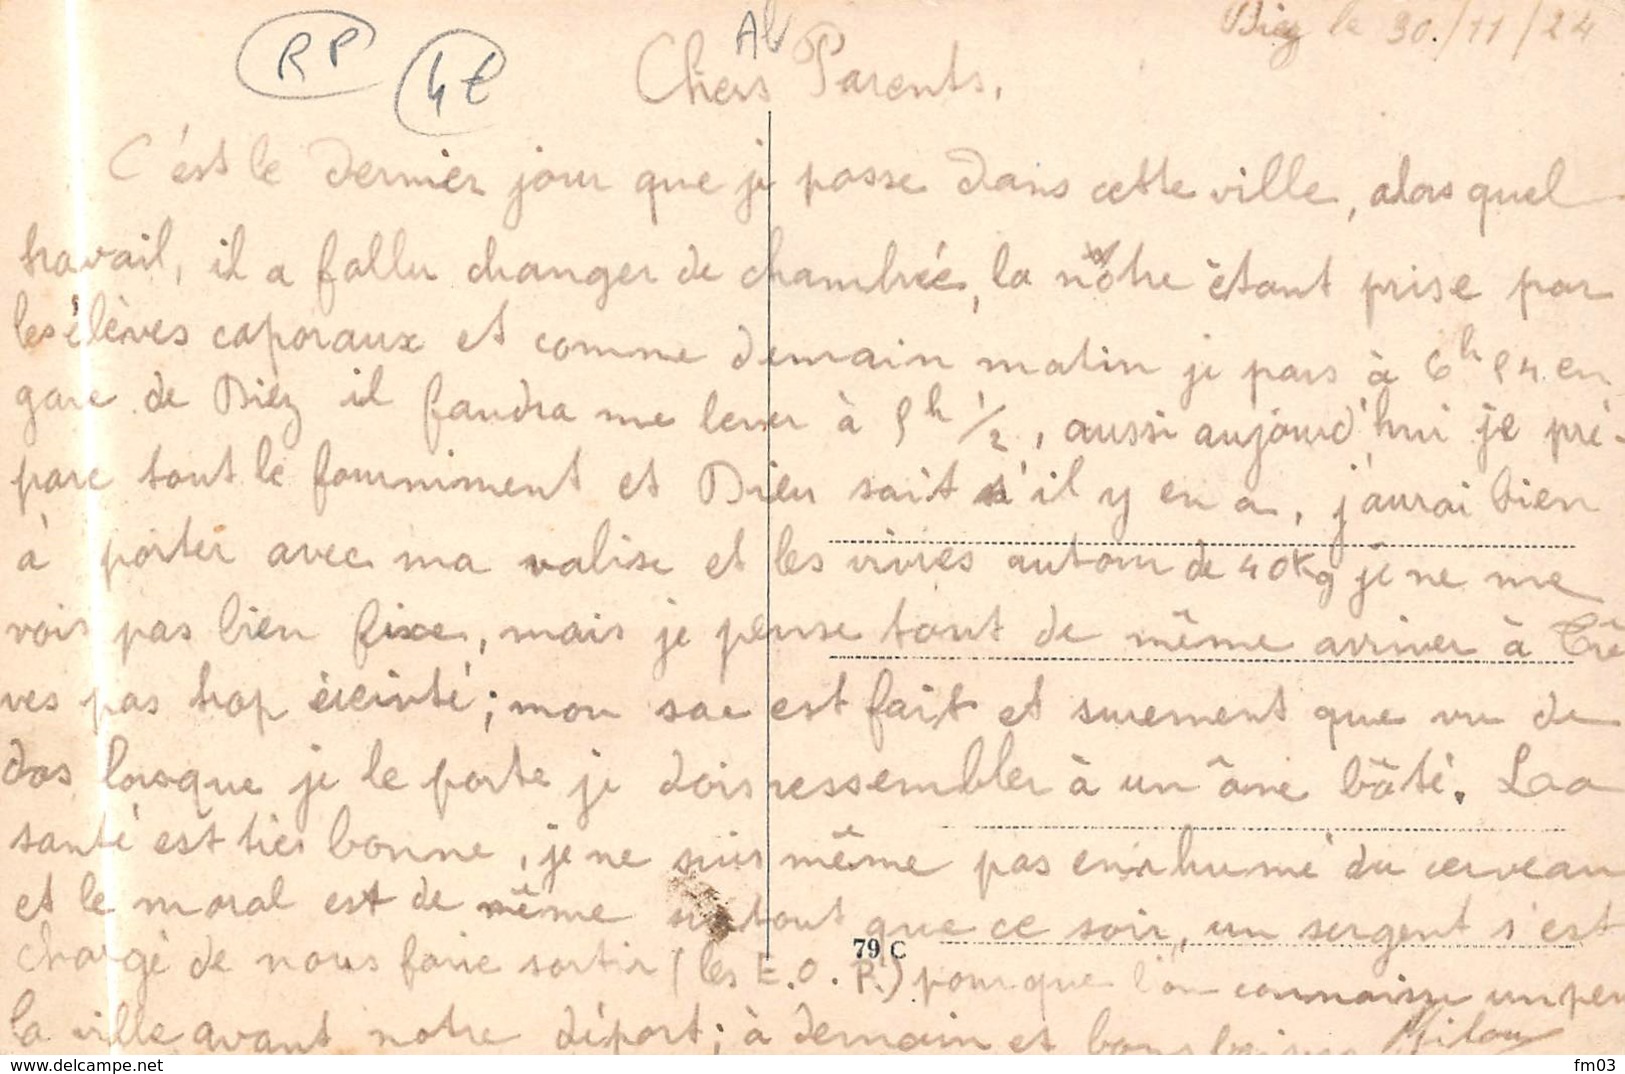 Diez le 30/11/24
RP
4€
Al
Chers Parents,
C'est le dernier jour que je passe dans cette ville, alors quel
travail, il a fallu changer de chambrée, la nôtre étant prise par
les élèves caporaux et comme demain matin je pars à 6h 54 en
gare de Diez il faudra me lever à 5h 1/2, aussi aujourd'hui je pré-
pare tout le fourniment et Dieu sait s'il y en a, j'aurai bien
à porter avec ma valise et les vivres autour de 40Kg je ne me
vois pas bien fixe, mais je pense tout de même arriver à Trê
ves pas trop éreinté; mon sac est fait et surement que vu de
dos lorsque je le porte je dois ressembler à un âne bâté. La
santé est très bonne, je ne suis même pas enrhumé du cerveau
et le moral est de même surtout que ce soir, un sergent s'est
chargé de nous faire sortir (les E.O.R.) pour que l'on connaisse un peu
79 C
la ville avant notre départ; à demain et bons baisers Milou
www.delcampe.net
fm03